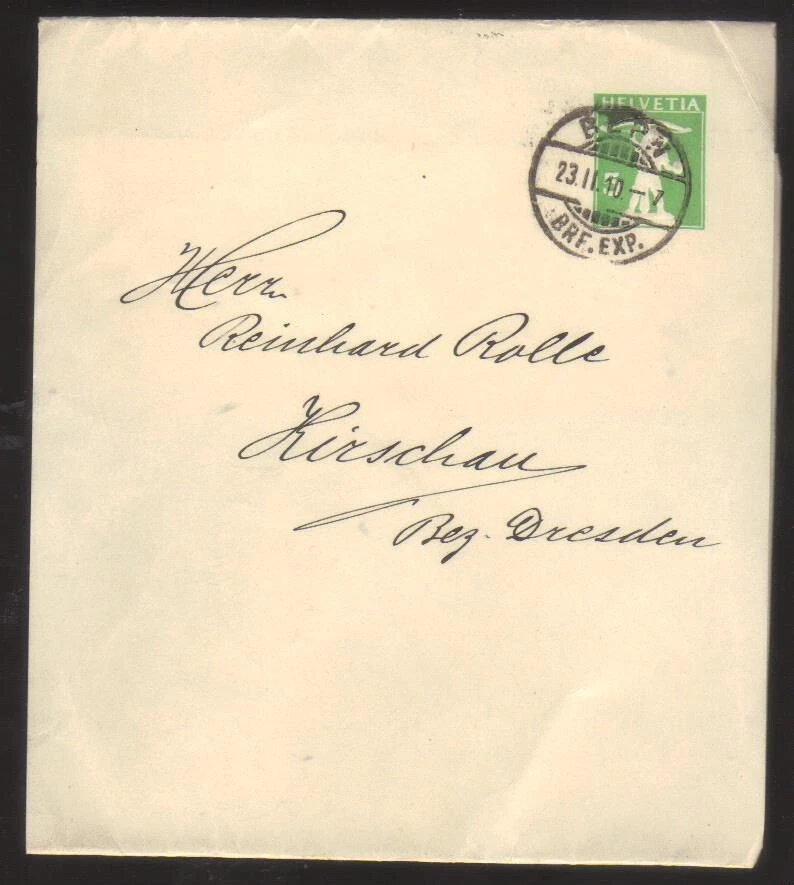 HELVETIA
BERN
23.II.10.–7
BRF. EXP.
5
Herrn
Reinhard Rolle
Kirschau
Bez. Dresden